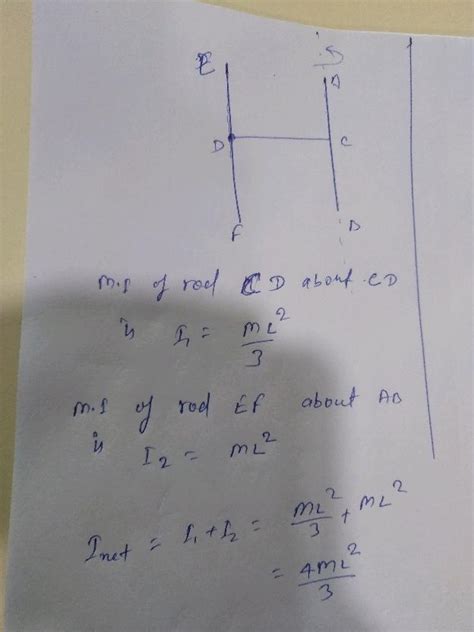 E S
A
D C
F B
M.I of rod CD about CD
is I₁ = mL²/3
M.I of rod EF about AB
is I₂ = mL²
Inet = I₁ + I₂ = mL²/3 + mL²
= 4mL²/3